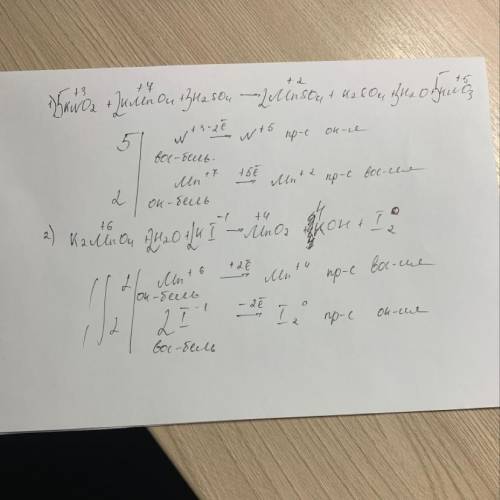 1) 5KNO₂ + 2KMnO₄ + 3H₂SO₄ → 2MnSO₄ + K₂SO₄ + 3H₂O + 5KNO₃
+3 +7 +2 +5
5 | N⁺³ -2ē → N⁺⁵ пр-с ок-ия
вос-тель
2 | Mn⁺⁷ +5ē → Mn⁺² пр-с вос-ия
ок-тель
2) K₂MnO₄ + 2H₂O + 2KI⁻¹ → MnO₂ + 4KOH + I₂⁰
+6 +4
1 | 2 | Mn⁺⁶ +2ē → Mn⁺⁴ пр-с вос-ия
ок-тель
1 | 2 | 2I⁻¹ -2ē → I₂⁰ пр-с ок-ия
вос-тель